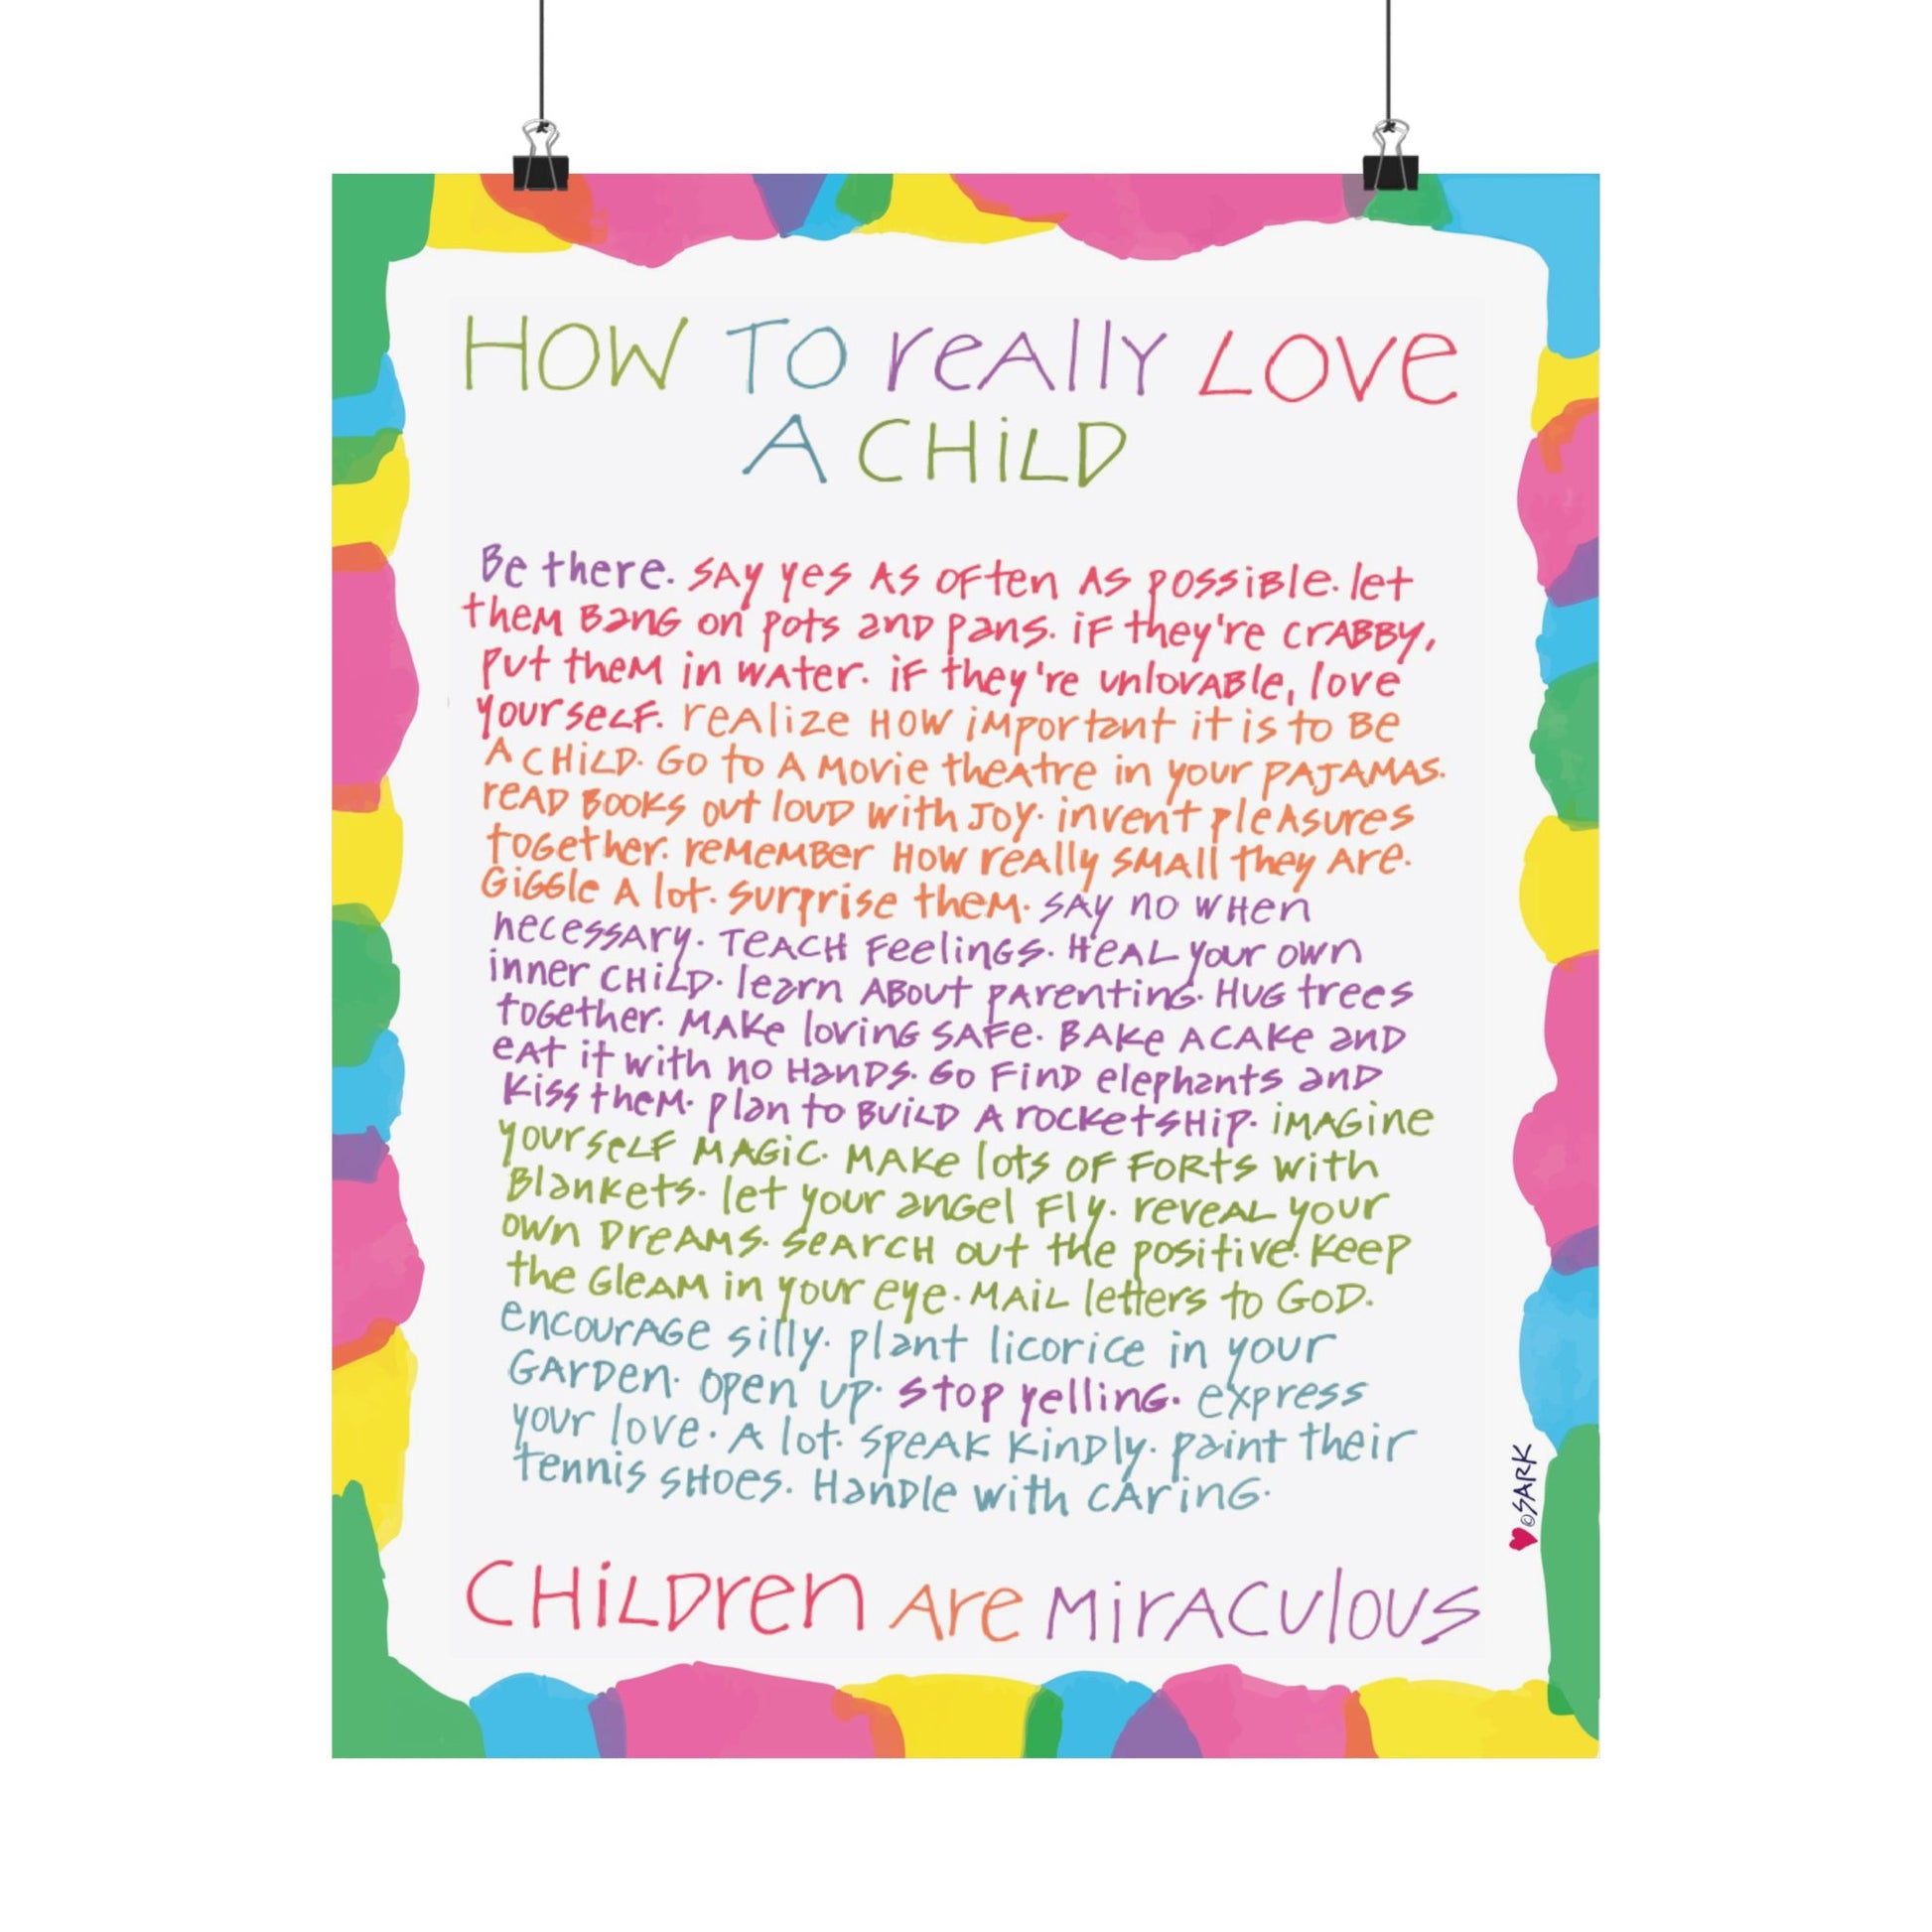 HOW TO reALLY LOVe
A CHiLD
Be there. SAY yes AS OFten AS pOSSiBle. let
theM BanG on pots anD pans. iF they're CrABBY,
put theM in WAter. iF they're unlovABle, love
yourseLF. reALize HOW iMportant it is to Be
A CHiLD. GO to A MOvie theAtre in your PAJAMAS.
reAD BOOKS out louD With JOY. invent pleAsures
toGether. reMeMBer HOW reALLY SMAll they Are.
GiGGle A lot. surprise theM. SAY no WHen
necessAry. TeACH FeelinGs. HeAL your own
inner CHiLD. learn ABOut pArentinG. HUG trees
toGether. MAKe lovinG SAFe. BAKe A CAKe anD
eAt it with no HanDs. GO FinD elephants anD
Kiss theM. plan to BuiLD A rOCKetsHip. iMAGine
yourseLF MAGiC. MAKe lots OF FOrts with
BlanKets. let your anGel Fly. reveAL your
own DreAMS. SeArCH out the positive. Keep
the GleAM in your eye. MAiL letters to GOD.
enCOurAGe silly. plant licorice in your
GArDen. Open up. stop yellinG. express
your love. A lot. SpeAK KinDly. paint their
tennis SHOes. HanDle with CAring.
♥©SARK
CHiLDren Are MirACulous